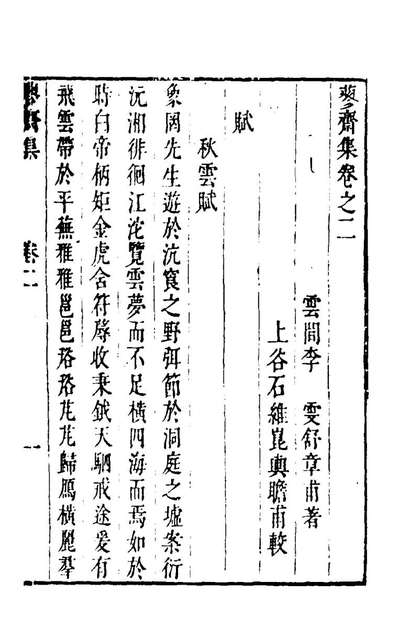 蓼齋集卷之二
雲間李　雯舒章甫著
上谷石維崑輿瞻甫較
賦
秋雲賦
象罔先生遊於沆㝗之野弭節於洞庭之墟案衍
沅湘徘徊江沱覽雲夢而不足橫四海而焉如於
時白帝柄矩金虎舍符蓐收秉鉞天駟戒途爰有
飛雲帶於平蕪雅雅邕邕珞珞芃芃歸鴈橫麗羣
蓼齋集
卷二
一